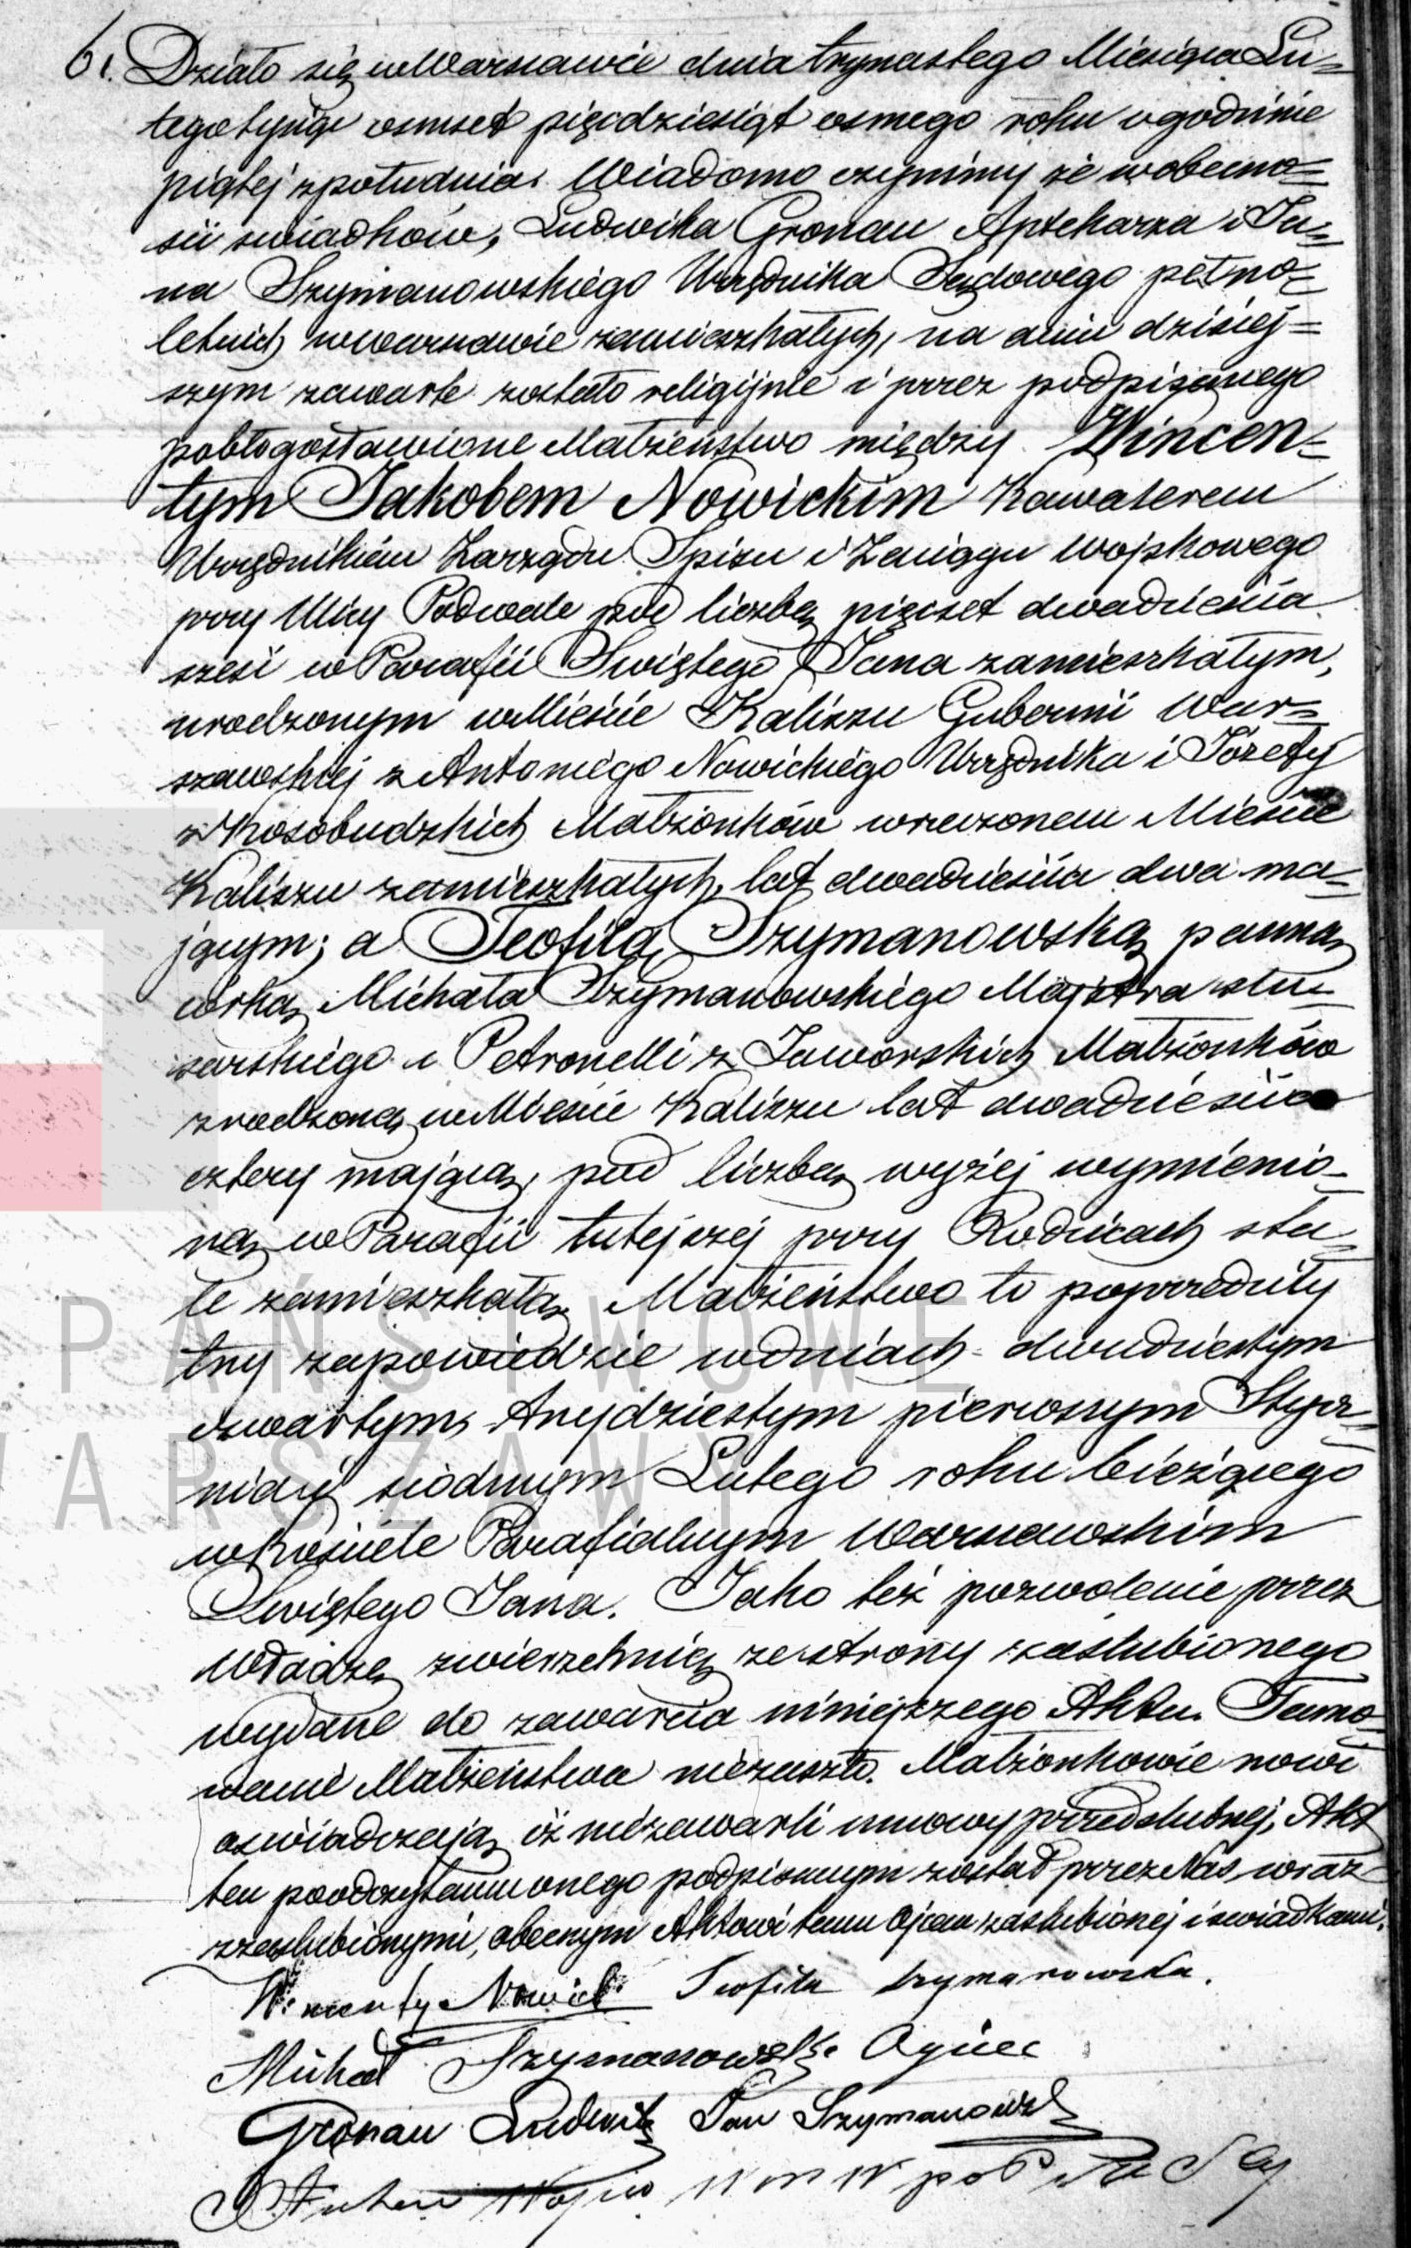 61. Działo się w Warszawie dnia trzynastego Miesiąca Lu=
tego tysiąc osmset pięćdziesiąt osmego roku o godzinie
piątej z południa. Wiadomo czynimy że w obecno=
ści swiadków, Ludwika Gronau Aptekarza i Ja=
na Szymanowskiego Urzędnika Sądowego pełno=
letnich w Warszawie zamieszkałych, na dniu dzisiej=
szym zawarte zostało religijnie i przez podpisanego
pobłogosławione Małżeństwo między Wincen=
tym Jakobem Nowickim Kawalerem
Urzędnikiem Zarządu Spisu i Zaciągu Wojskowego
przy Ulicy Podwale pod liczbą pięćset dwadzieścia
sześć w Parafii Świętego Jana zamieszkałym,
urodzonym w Mieście Kaliszu Gubernii War=
szawskiej z Antoniego Nowickiego Urzędnika i Józefy
z Kosobudzkich Małżonków w rzeczonem Mieście
Kaliszu zamieszkałych, lat dwadzieścia dwa ma=
jącym; a Teofilą Szymanowską panną
córką Michała Szymanowskiego Majstra slu=
sarskiego i Petronelli z Jaworskich Małżonków
zrodzoną w Mieście Kaliszu lat dwadzieścia
cztery mającą, pod liczbą wyżej wymienio=
ną w Parafii tutejszej przy Rodzicach sta=
le zamieszkałą. Małżeństwo to poprzedziły
trzy zapowiedzie w dniach dwudziestym
czwartym, trzydziestym pierwszym Stycz=
nia i siódmym Lutego roku bieżącego
w Kościele Parafialnym Warszawskim
Świętego Jana. Jako też pozwolenie przez
Władzę zwierzchnią ze strony zaślubionego
wydane do zawarcia niniejszego Aktu. Tamo=
wanie Małżeństwa niezaszło. Małżonkowie nowi
oświadczają iż niezawarli umowy przedślubnej, Akt
ten po odczytaniu onego podpisanym został przez Nas wraz
z zaślubionymi, obecnym Aktowi temu Ojcem zaślubionej i swiadkami.
Wincenty Nowicki Teofila Szymanowska.
Michał Szymanowski Ojciec
Gronau Ludwik Jan Szymanowski
PAŃSTWOWE
WARSZAWY